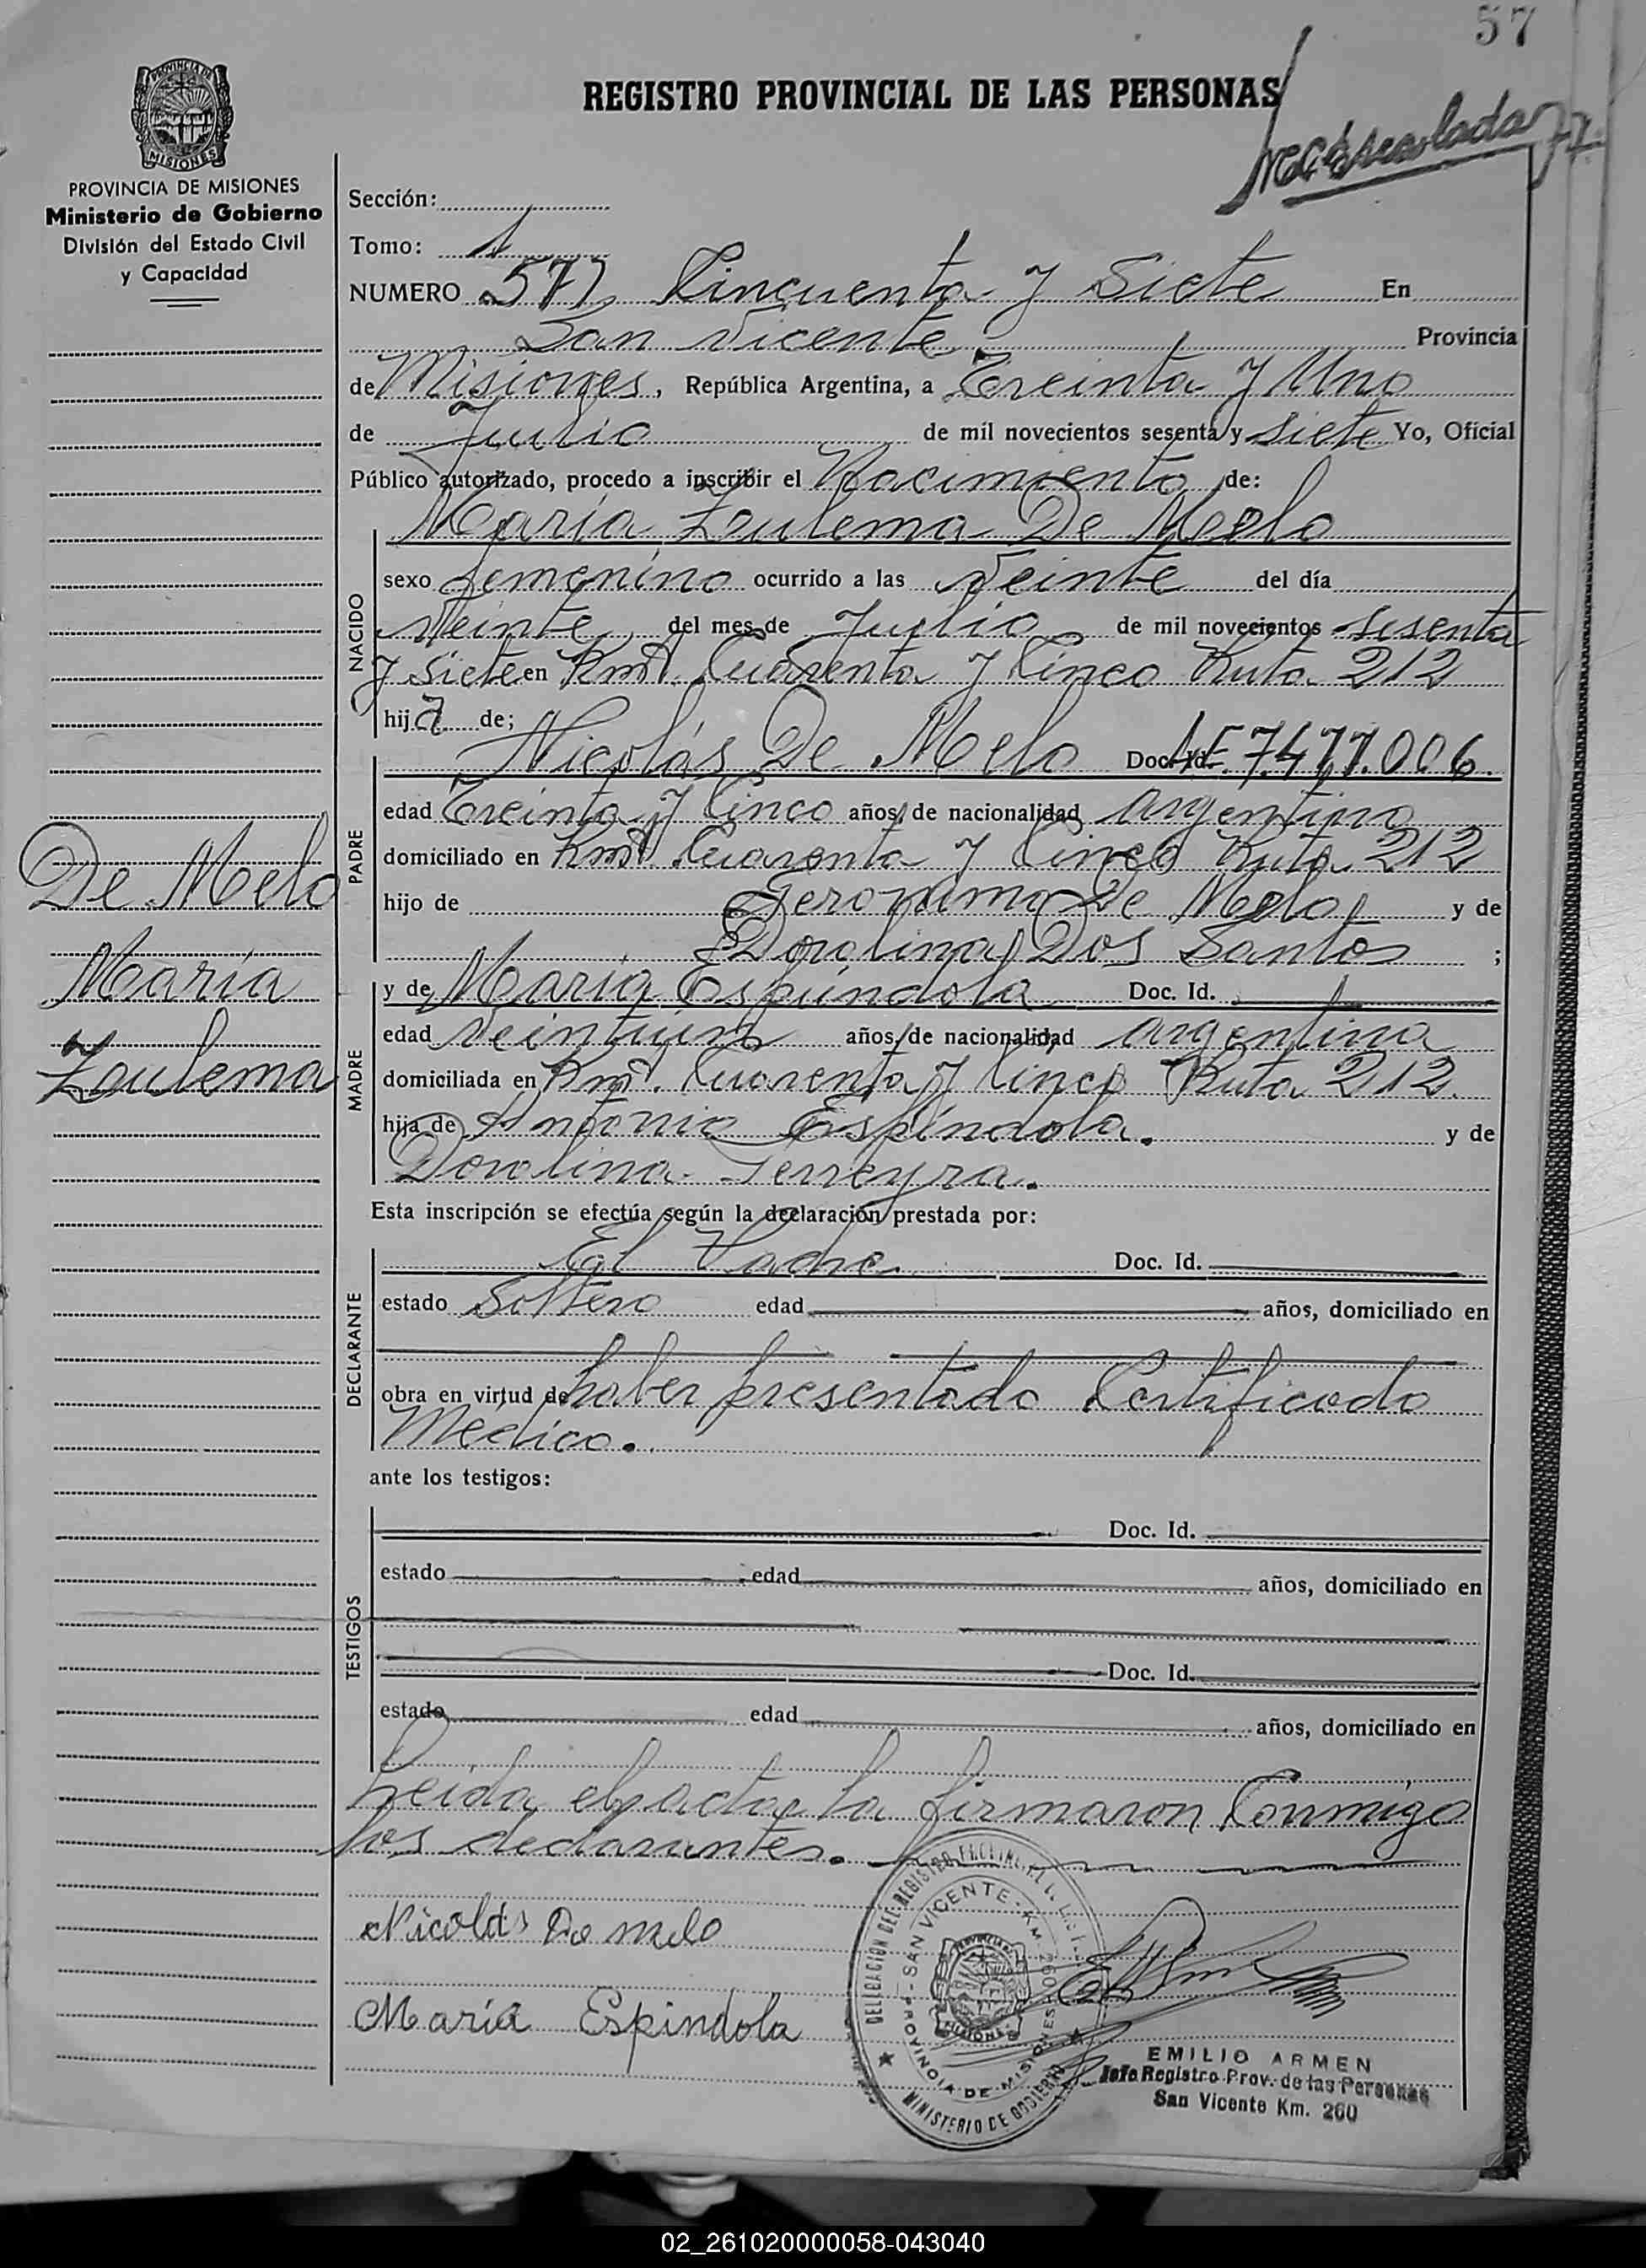 57
REGISTRO PROVINCIAL DE LAS PERSONAS
PROVINCIA DE
MISIONES
PROVINCIA DE MISIONES
Ministerio de Gobierno
División del Estado Civil
y Capacidad
Sección:
Tomo: 1
NUMERO 57) Cincuenta y Siete En
San Vicente Provincia
de Misiones, República Argentina, a Treinta y Uno
de Julio de mil novecientos sesenta y siete Yo, Oficial
Público autorizado, procedo a inscribir el Nacimiento de:
María Zulema De Melo
NACIDO
sexo femenino ocurrido a las veinte del día
Veinte del mes de Julio de mil novecientos sesenta
y siete en Kmt. Cuarenta y Cinco Ruta 212
hija de;
PADRE
Nicolás De Melo Doc. Id. 7.477.006.
edad Treinta y Cinco años, de nacionalidad argentino
domiciliado en Kmt. Cuarenta y Cinco Ruta 212
hijo de Geronimo De Melo y de
Dorolina Dos Santos ;
MADRE
y de María Espíndola Doc. Id.
edad veintiún años, de nacionalidad argentina
domiciliada en Kmt. Cuarenta y Cinco Ruta 212.
hija de Antonio Espíndola. y de
Dorolina Ferreyra.
De Melo
María
Zulema
Esta inscripción se efectúa según la declaración prestada por:
DECLARANTE
El Padre. Doc. Id.
estado Soltero edad años, domiciliado en
obra en virtud de haber presentado Certificado
Médico.
ante los testigos:
TESTIGOS
Doc. Id.
estado edad años, domiciliado en
Doc. Id.
estado edad años, domiciliado en
Leída el acta la firmaron Conmigo
los declarantes.
Nicolás De melo
María Espindola
DELEGACION DEL REGISTRO
SAN VICENTE - KM. 260
PROVINCIA DE MISIONES
MINISTERIO DE GOBIERNO
EMILIO ARMEN
Jefe Registro Prov. de las Personas
San Vicente Km. 260
02_261020000058-043040